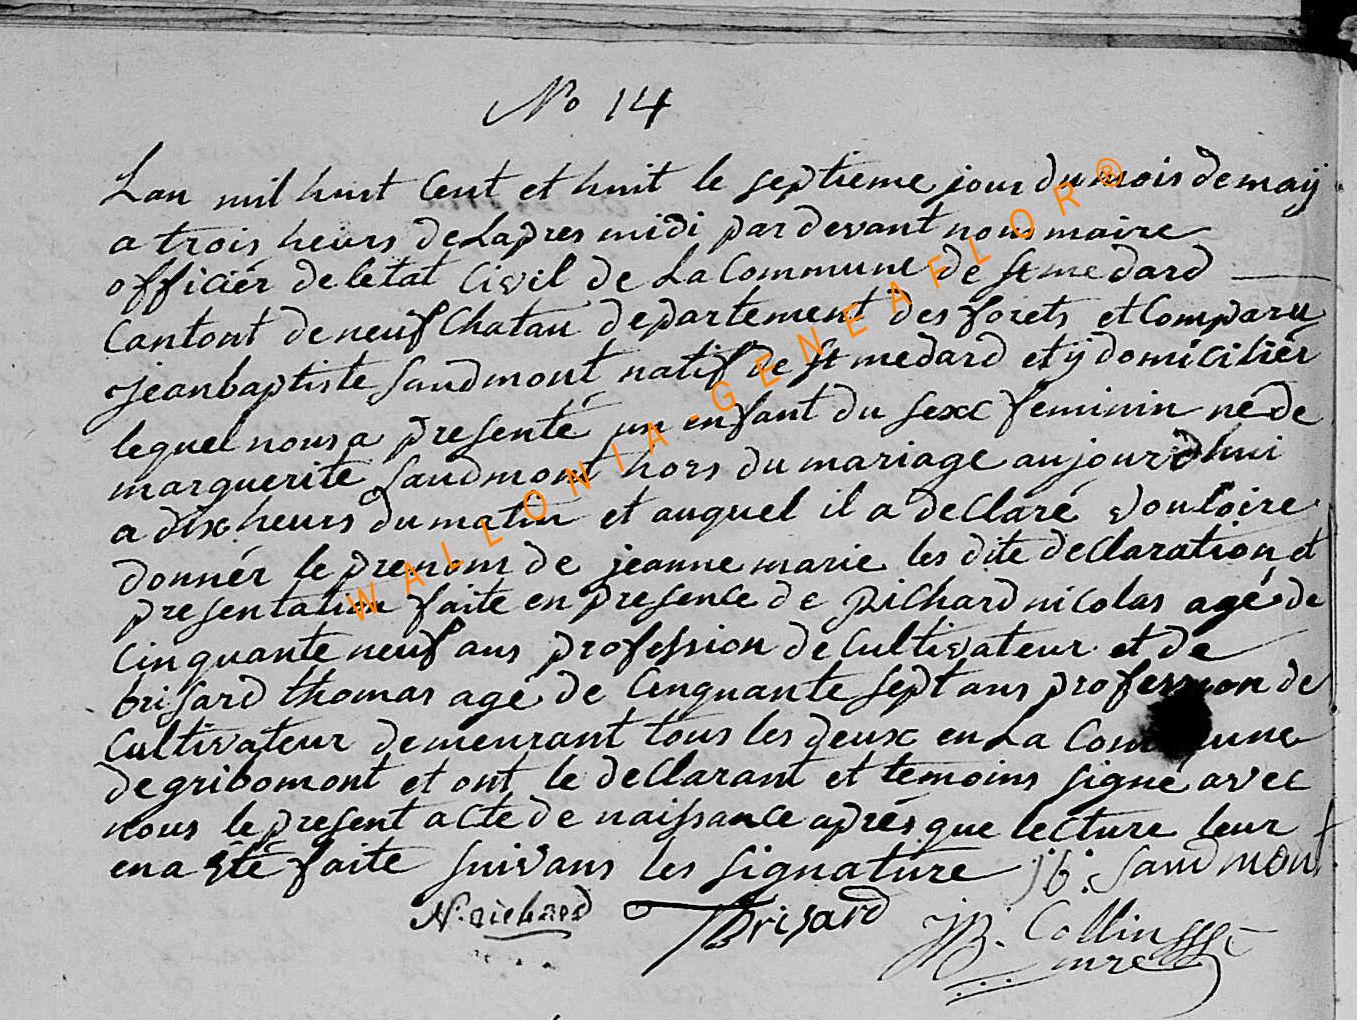 No 14
Lan mil huit Cent et huit le septieme jour du mois de maÿ
a trois heurs de Lapres midi par devant nous maire
officiér de letat Civil de La Commune de St medard
Cantont de neufchatau departement des forets et Comparu
jean baptiste Saudmont natif de St medard et ÿ domiciliér
lequel nous a presenté un enfant du sexe feminin né de
marguerite Saudmont hors du mariage aujourdhui
a dix heurs du matin et auquel il a declaré vouloire
donnér le prenom de jeanne marie les dite declaration et
presentation faite en presence de Richard nicolas agé de
Cinquante neuf ans profession de Cultivateur et de
brisard thomas agé de Cinquante sept ans profession de
Cultivateur demeurant tous les deux en La Commune
de gribomont et ont le declarant et temoins signé avec
nous le present acte de naissance aprés que lecture leur
en a été faite suivans les signature jb: Saudmont
N. richard Brisard JB: Collin
mre
WALLONIA-GENEAFLOR®